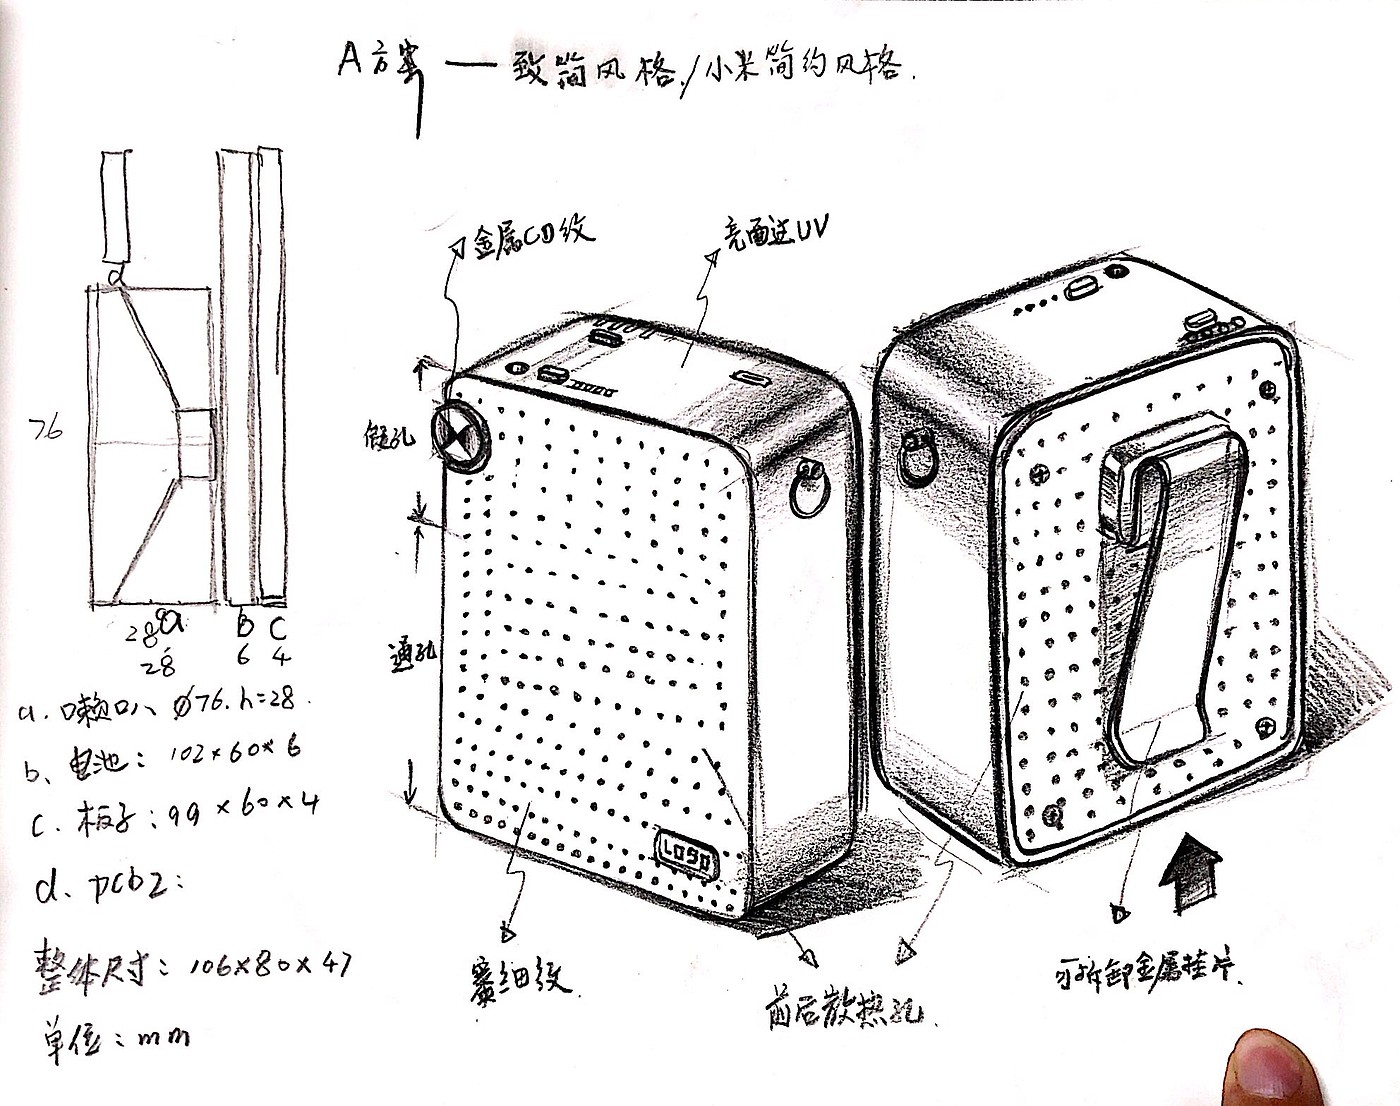 A方案 — 致简风格/小米简约风格.
金属CD纹
亮面过UV
d
76
假孔
通孔
28 a b c
28 6 4
a. 喇叭 Ø76. h=28.
b、电池: 102×60×6
c. 板子: 99×60×4
d. pcb2:
整体尺寸: 106×80×47
单位: mm
LOGO
蜜细纹
前后散热孔.
可拆卸金属挂片.